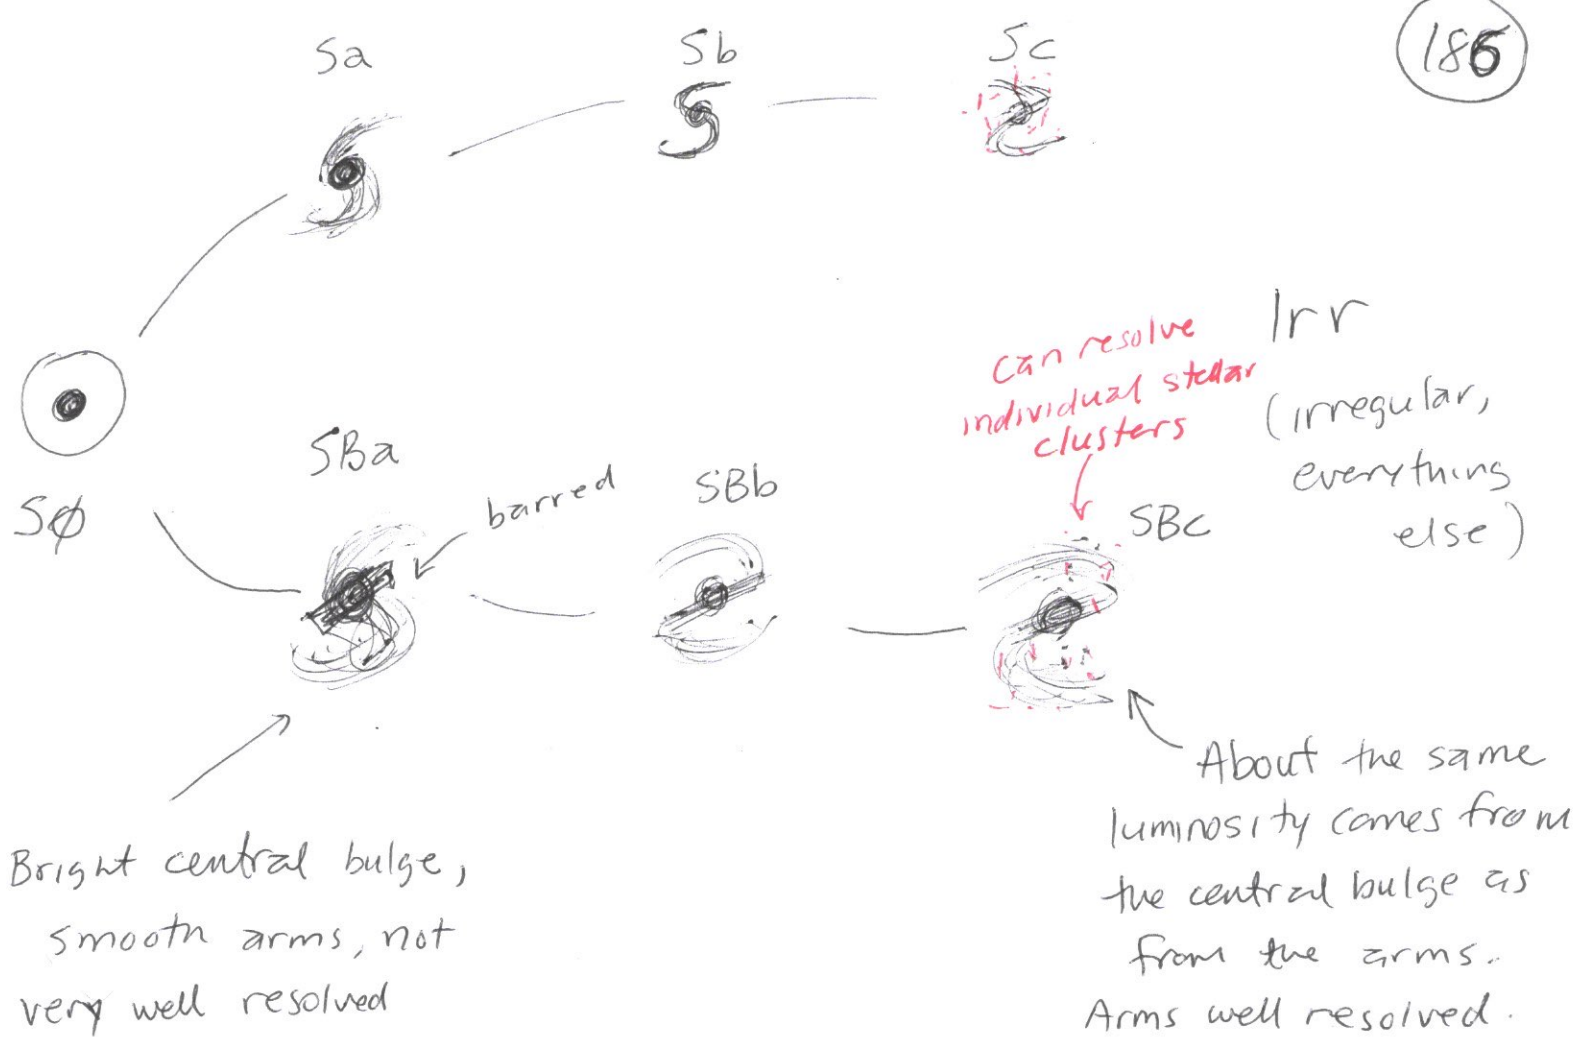 186
Sa
Sb
Sc
Can resolve
individual stellar
clusters
Irr
(irregular,
everything
else)
SØ
SBa
barred
SBb
SBc
Bright central bulge,
smooth arms, not
very well resolved
About the same
luminosity comes from
the central bulge as
from the arms.
Arms well resolved.